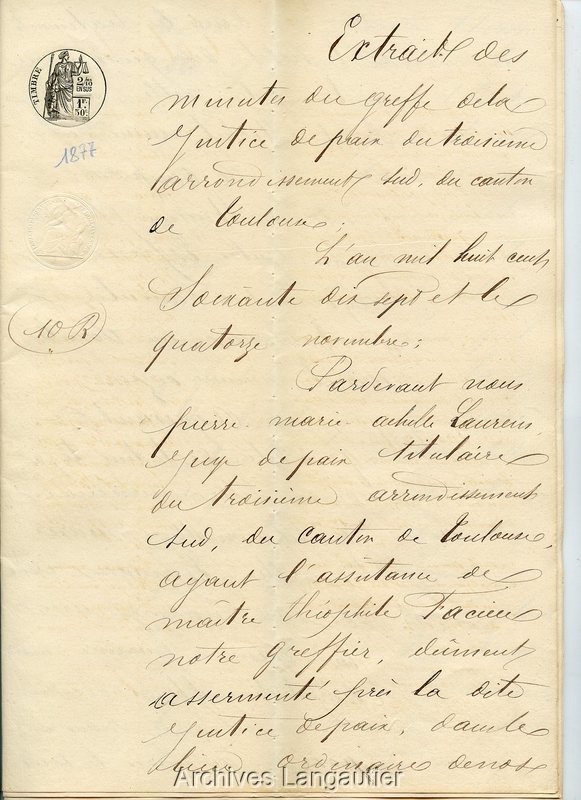 Extrait des
TIMBRE
2/10
EN SUS
1F
50c
minutes du greffe de la
1877
Justice de paix du troisième
arrondissement sud, du canton
de Toulouse;
L'an mil huit cent
Soixante dix sept et le
10 R
quatorze novembre;
Pardevant nous
pierre marie achille Laurens,
Juge de paix titulaire
du troisième arrondissement
sud, du canton de Toulouse,
ayant l'assistance de
maitre théophile Facieu
notre Greffier, dûment
assermenté près la dite
Justice de paix, dans le
lieu ordinaire de nos
Archives Langautier